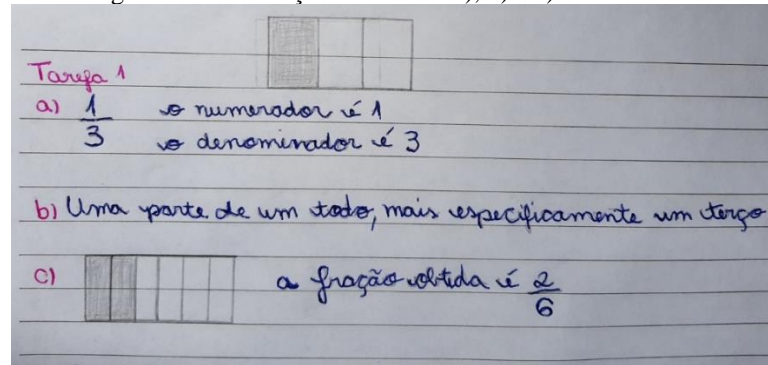 Tarefa 1
a) 1/3 o numerador é 1
o denominador é 3
b) Uma parte de um todo, mais especificamente um terço
c) a fração obtida é 2/6